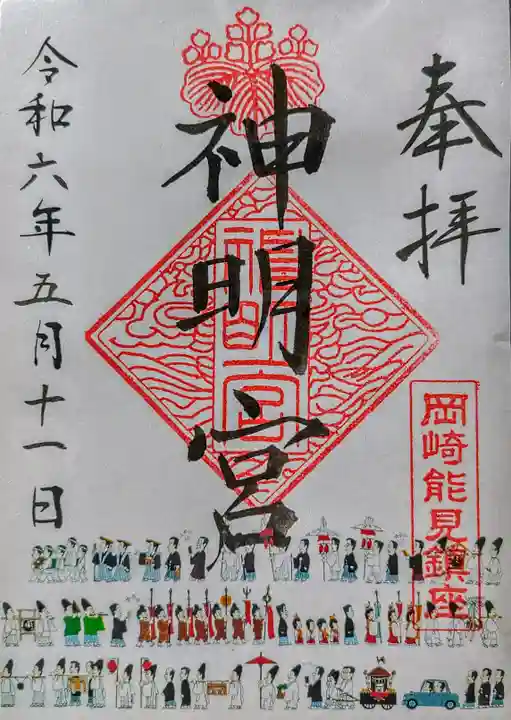 奉拝
岡崎能見鎮座
神明宮
神明宮
令和六年五月十一日